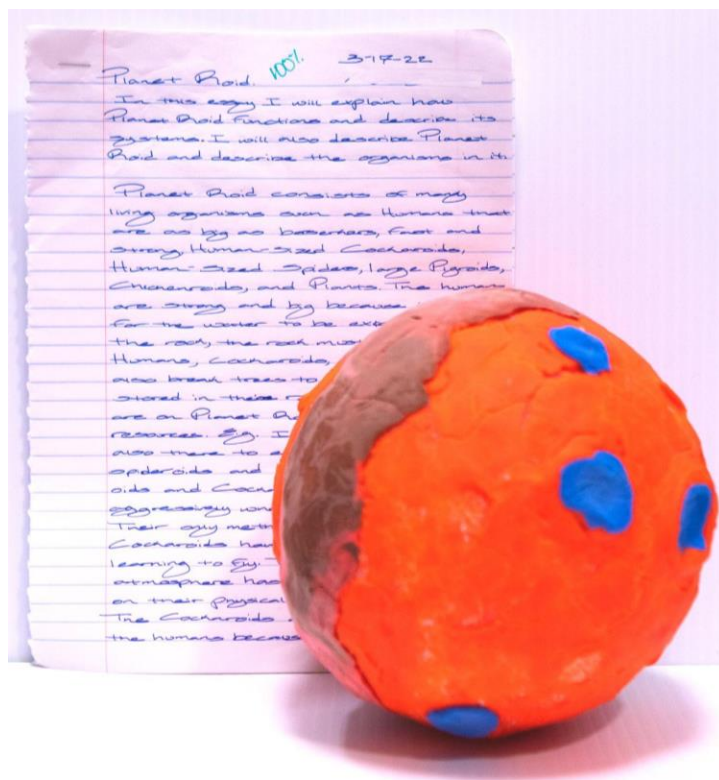 Planet Roid. 100% 3-17-22
In this essay I will explain how
Planet Roid Functions and describe its
systems. I will also describe Planet
Roid and describe the organisms in it.
Planet Roid consists of many
living organisms such as Humans that
are as big as beserkers, Fast and
strong, Human-Sized Cockaroids,
Human-Sized Spiders, large Pigroids,
Chickenroids, and Plants. The humans
are strong and big because
For the water to be
the rock, the rock
Humans, Cockaroids,
also break trees to
stored in their
are on Planet
resources. Eg. I
also there to
spideroids and
oids and
aggressively
Their only
Cockaroids
learning to Fly.
atmosphere has
on their physical
The Cockaroids
the humans because